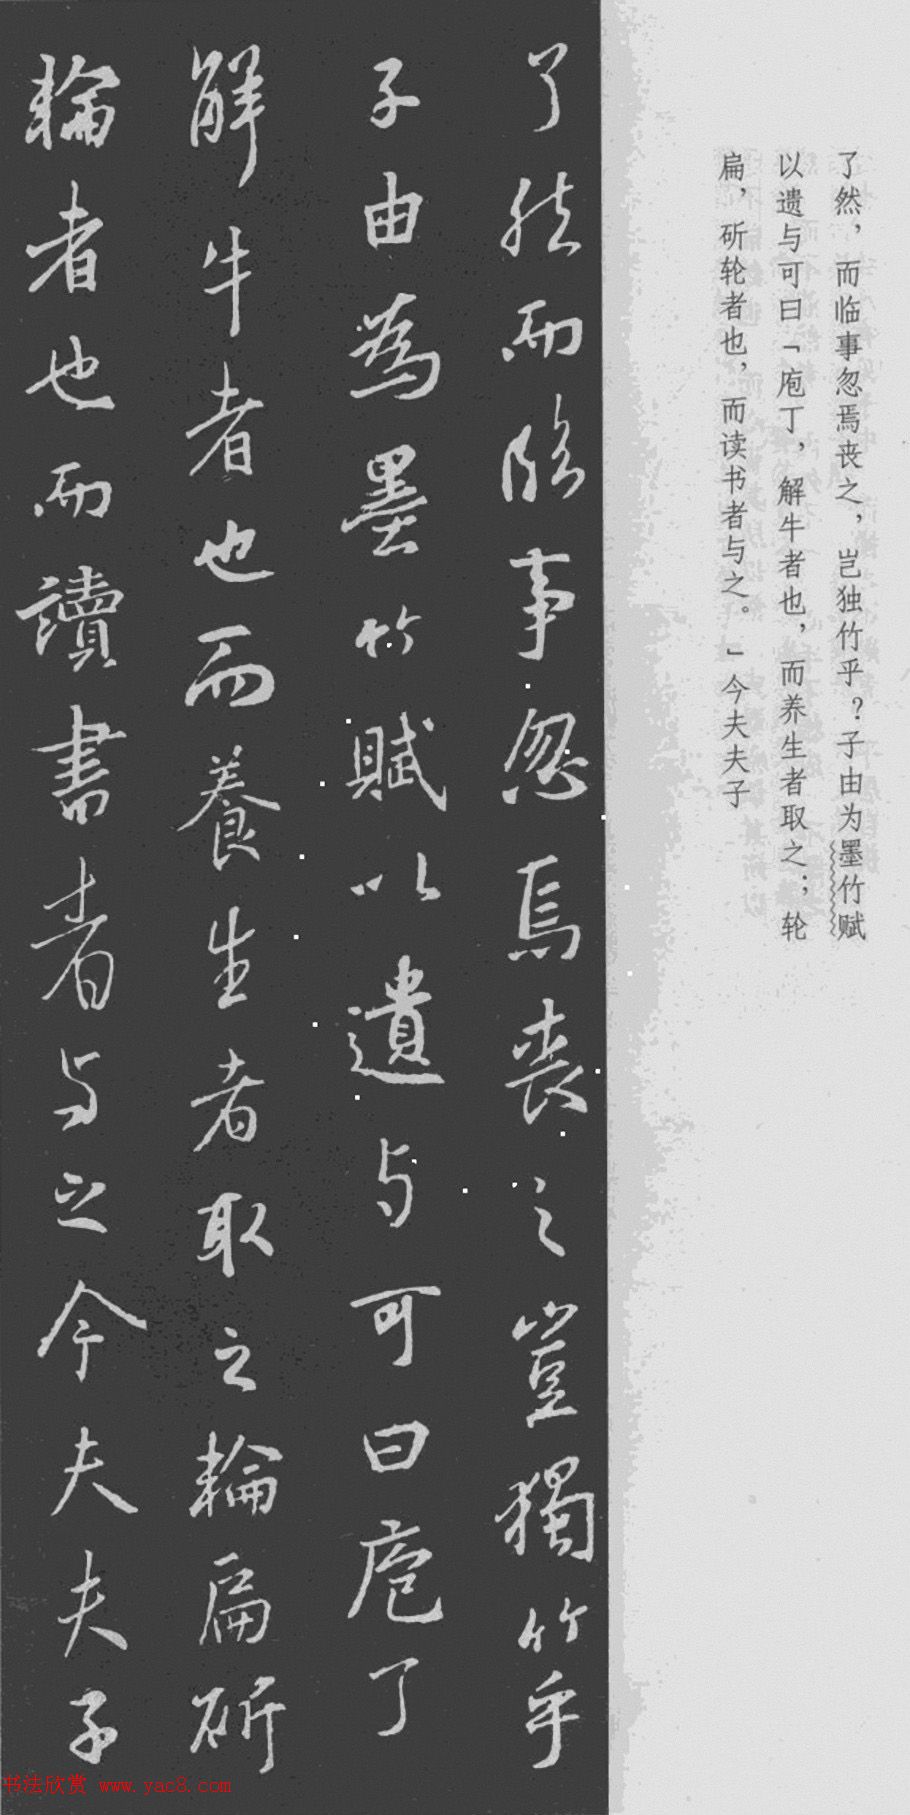 了然，而临事忽焉丧之，岂独竹乎？子由为墨竹赋
以遗与可曰「庖丁，解牛者也，而养生者取之；轮
扁，斫轮者也，而读书者与之。」今夫夫子
了然而臨事忽焉喪之豈獨竹乎
子由為墨竹賦以遺与可曰庖丁
解牛者也而養生者取之輪扁斫
輪者也而讀書者与之今夫夫子
书法欣赏 www.yac8.com